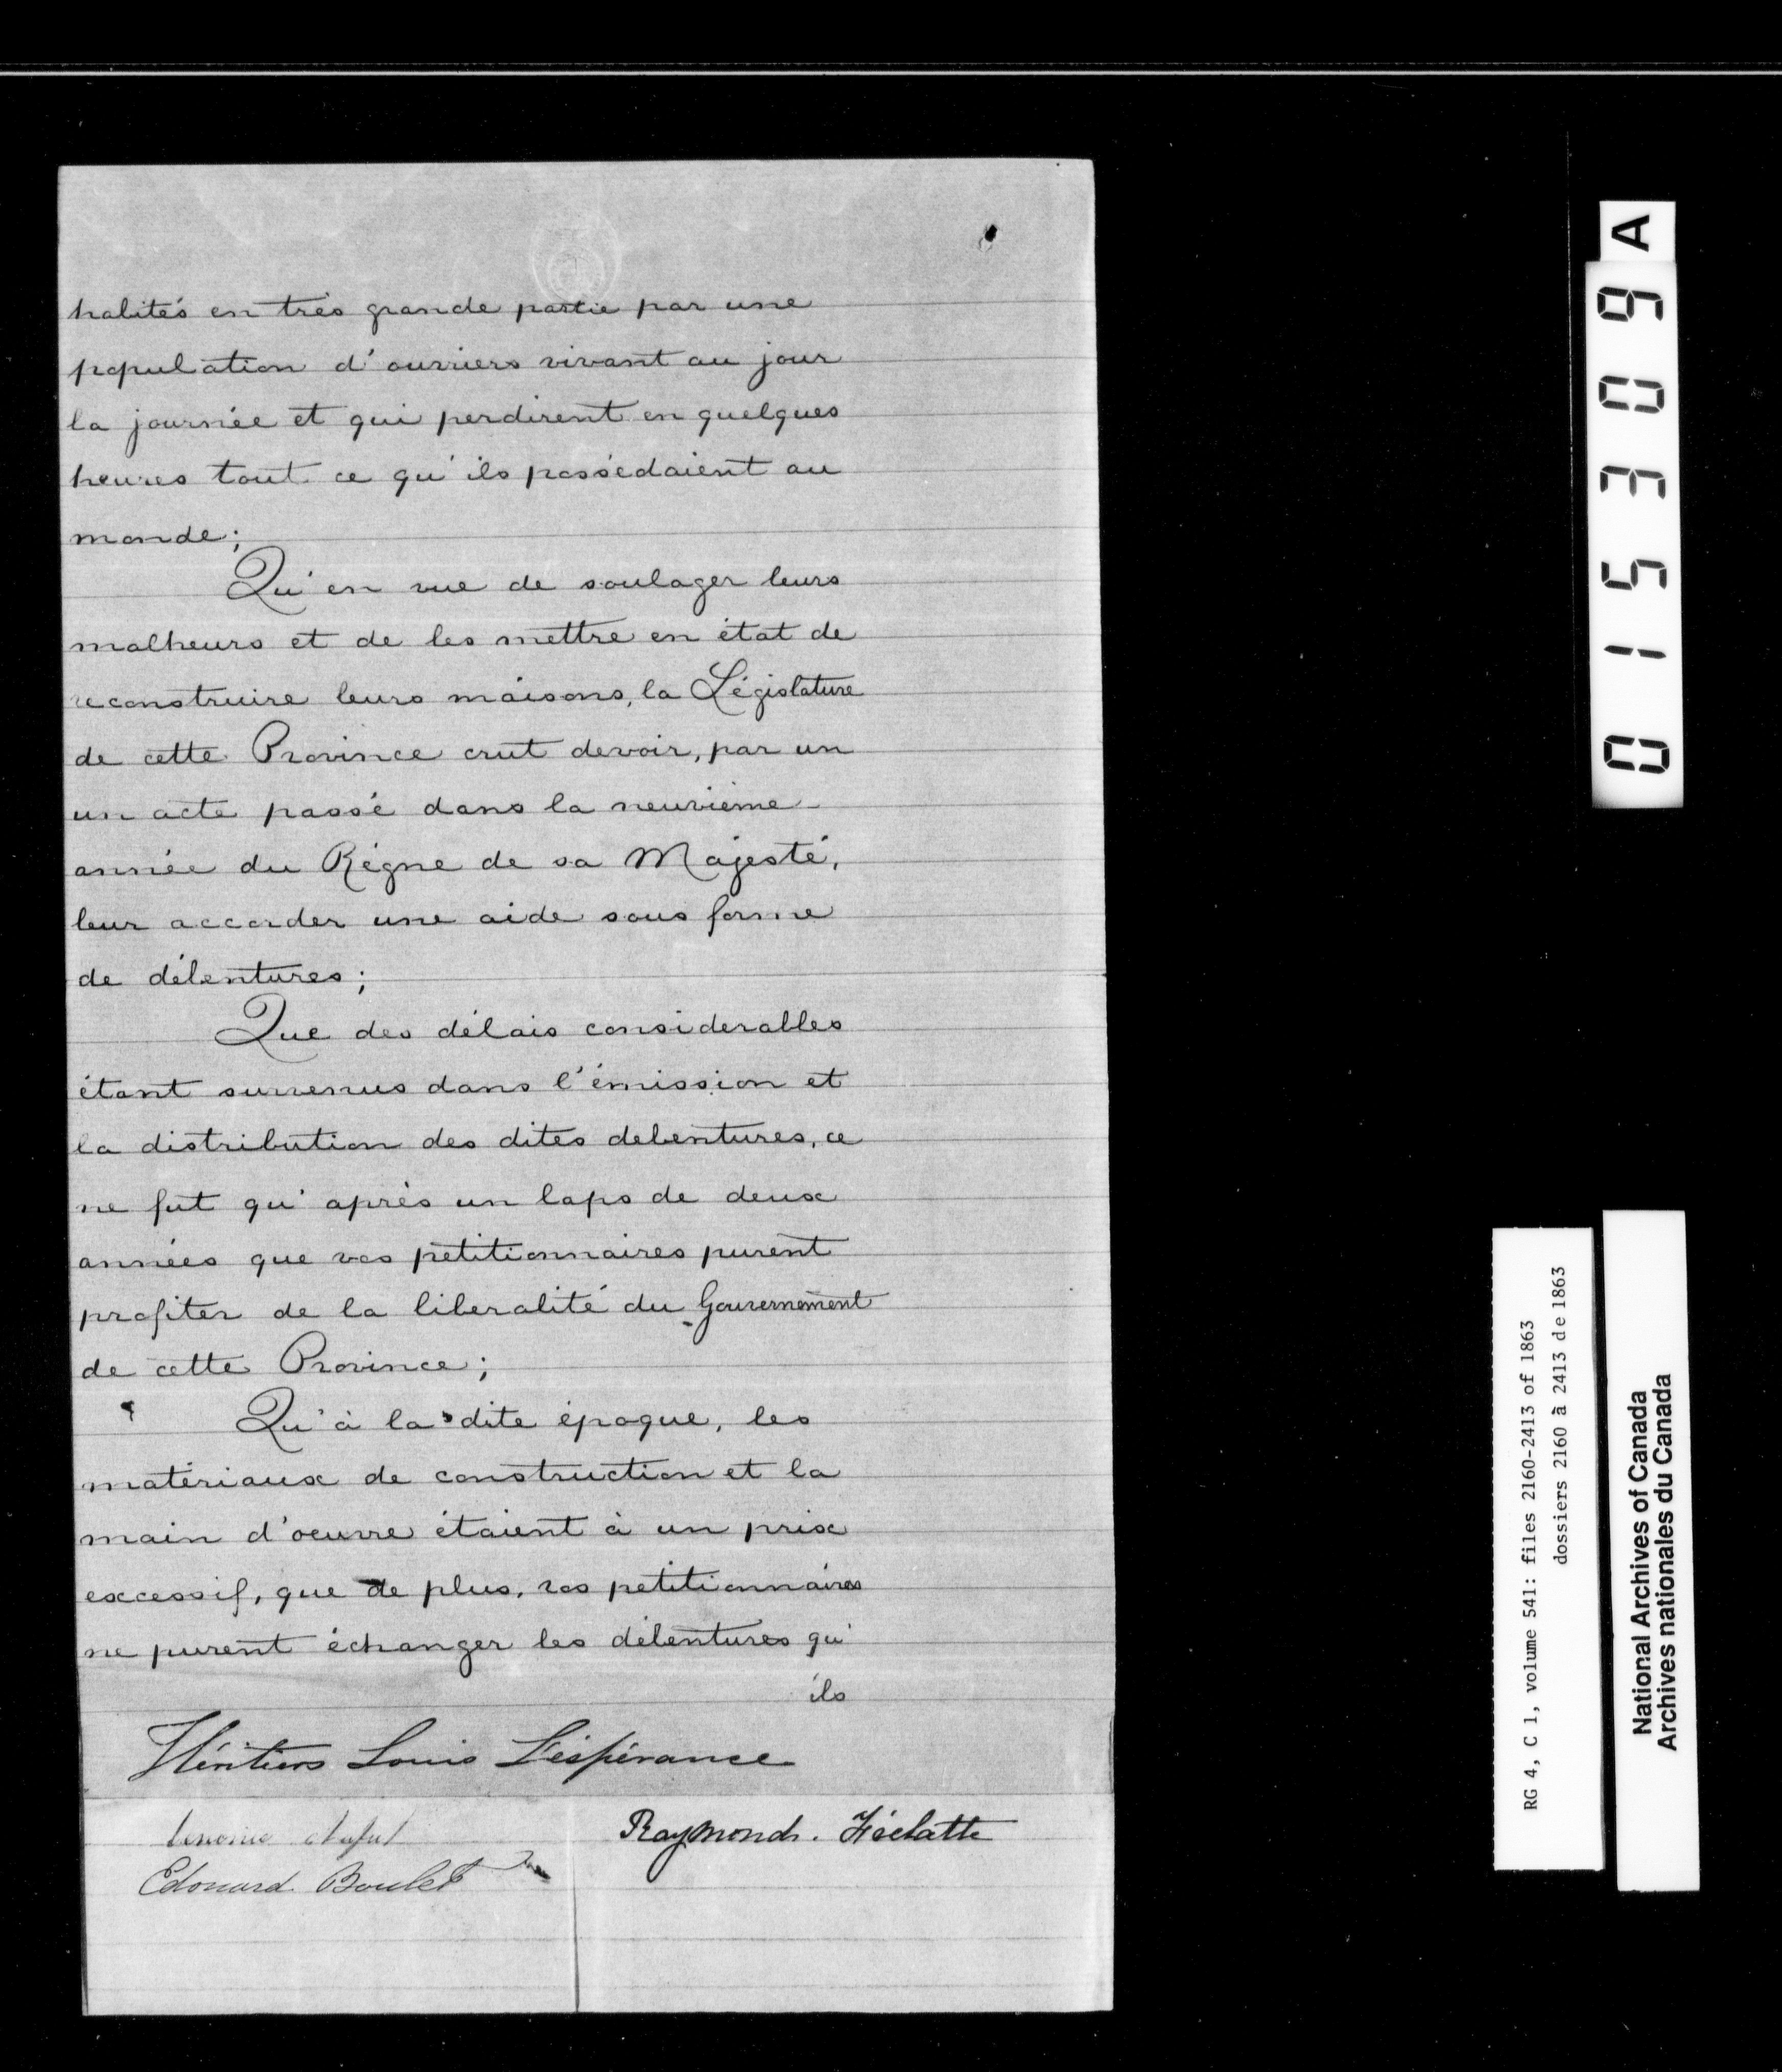 habités en très grande partie par une
population d'ouvriers vivant au jour
la journée et qui perdirent en quelques
heures tout ce qu'ils possédaient au
monde;
Qu'en vue de soulager leurs
malheurs et de les mettre en état de
reconstruire leurs maisons, la Législature
de cette Province crut devoir, par un
un acte passé dans la neuvième
année du Règne de sa Majesté,
leur accorder une aide sous forme
de débentures;
Que des délais considerables
étant survenus dans l'émission et
la distribution des dites debentures, ce
ne fut qu'après un laps de deux
années que vos pétitionnaires purent
profiter de la liberalité du Gouvernement
de cette Province;
Qu'à la dite époque, les
matériaux de construction et la
main d'oeuvre étaient à un prix
excessif, que de plus, vos petitionnaires
ne purent échanger les débentures qu'
ils
Héritiers Louis Lespérance
Raymond
Edouard Boulet
015309A
RG 4, C 1, volume 541: files 2160-2413 of 1863
dossiers 2160 à 2413 de 1863
National Archives of Canada
Archives nationales du Canada